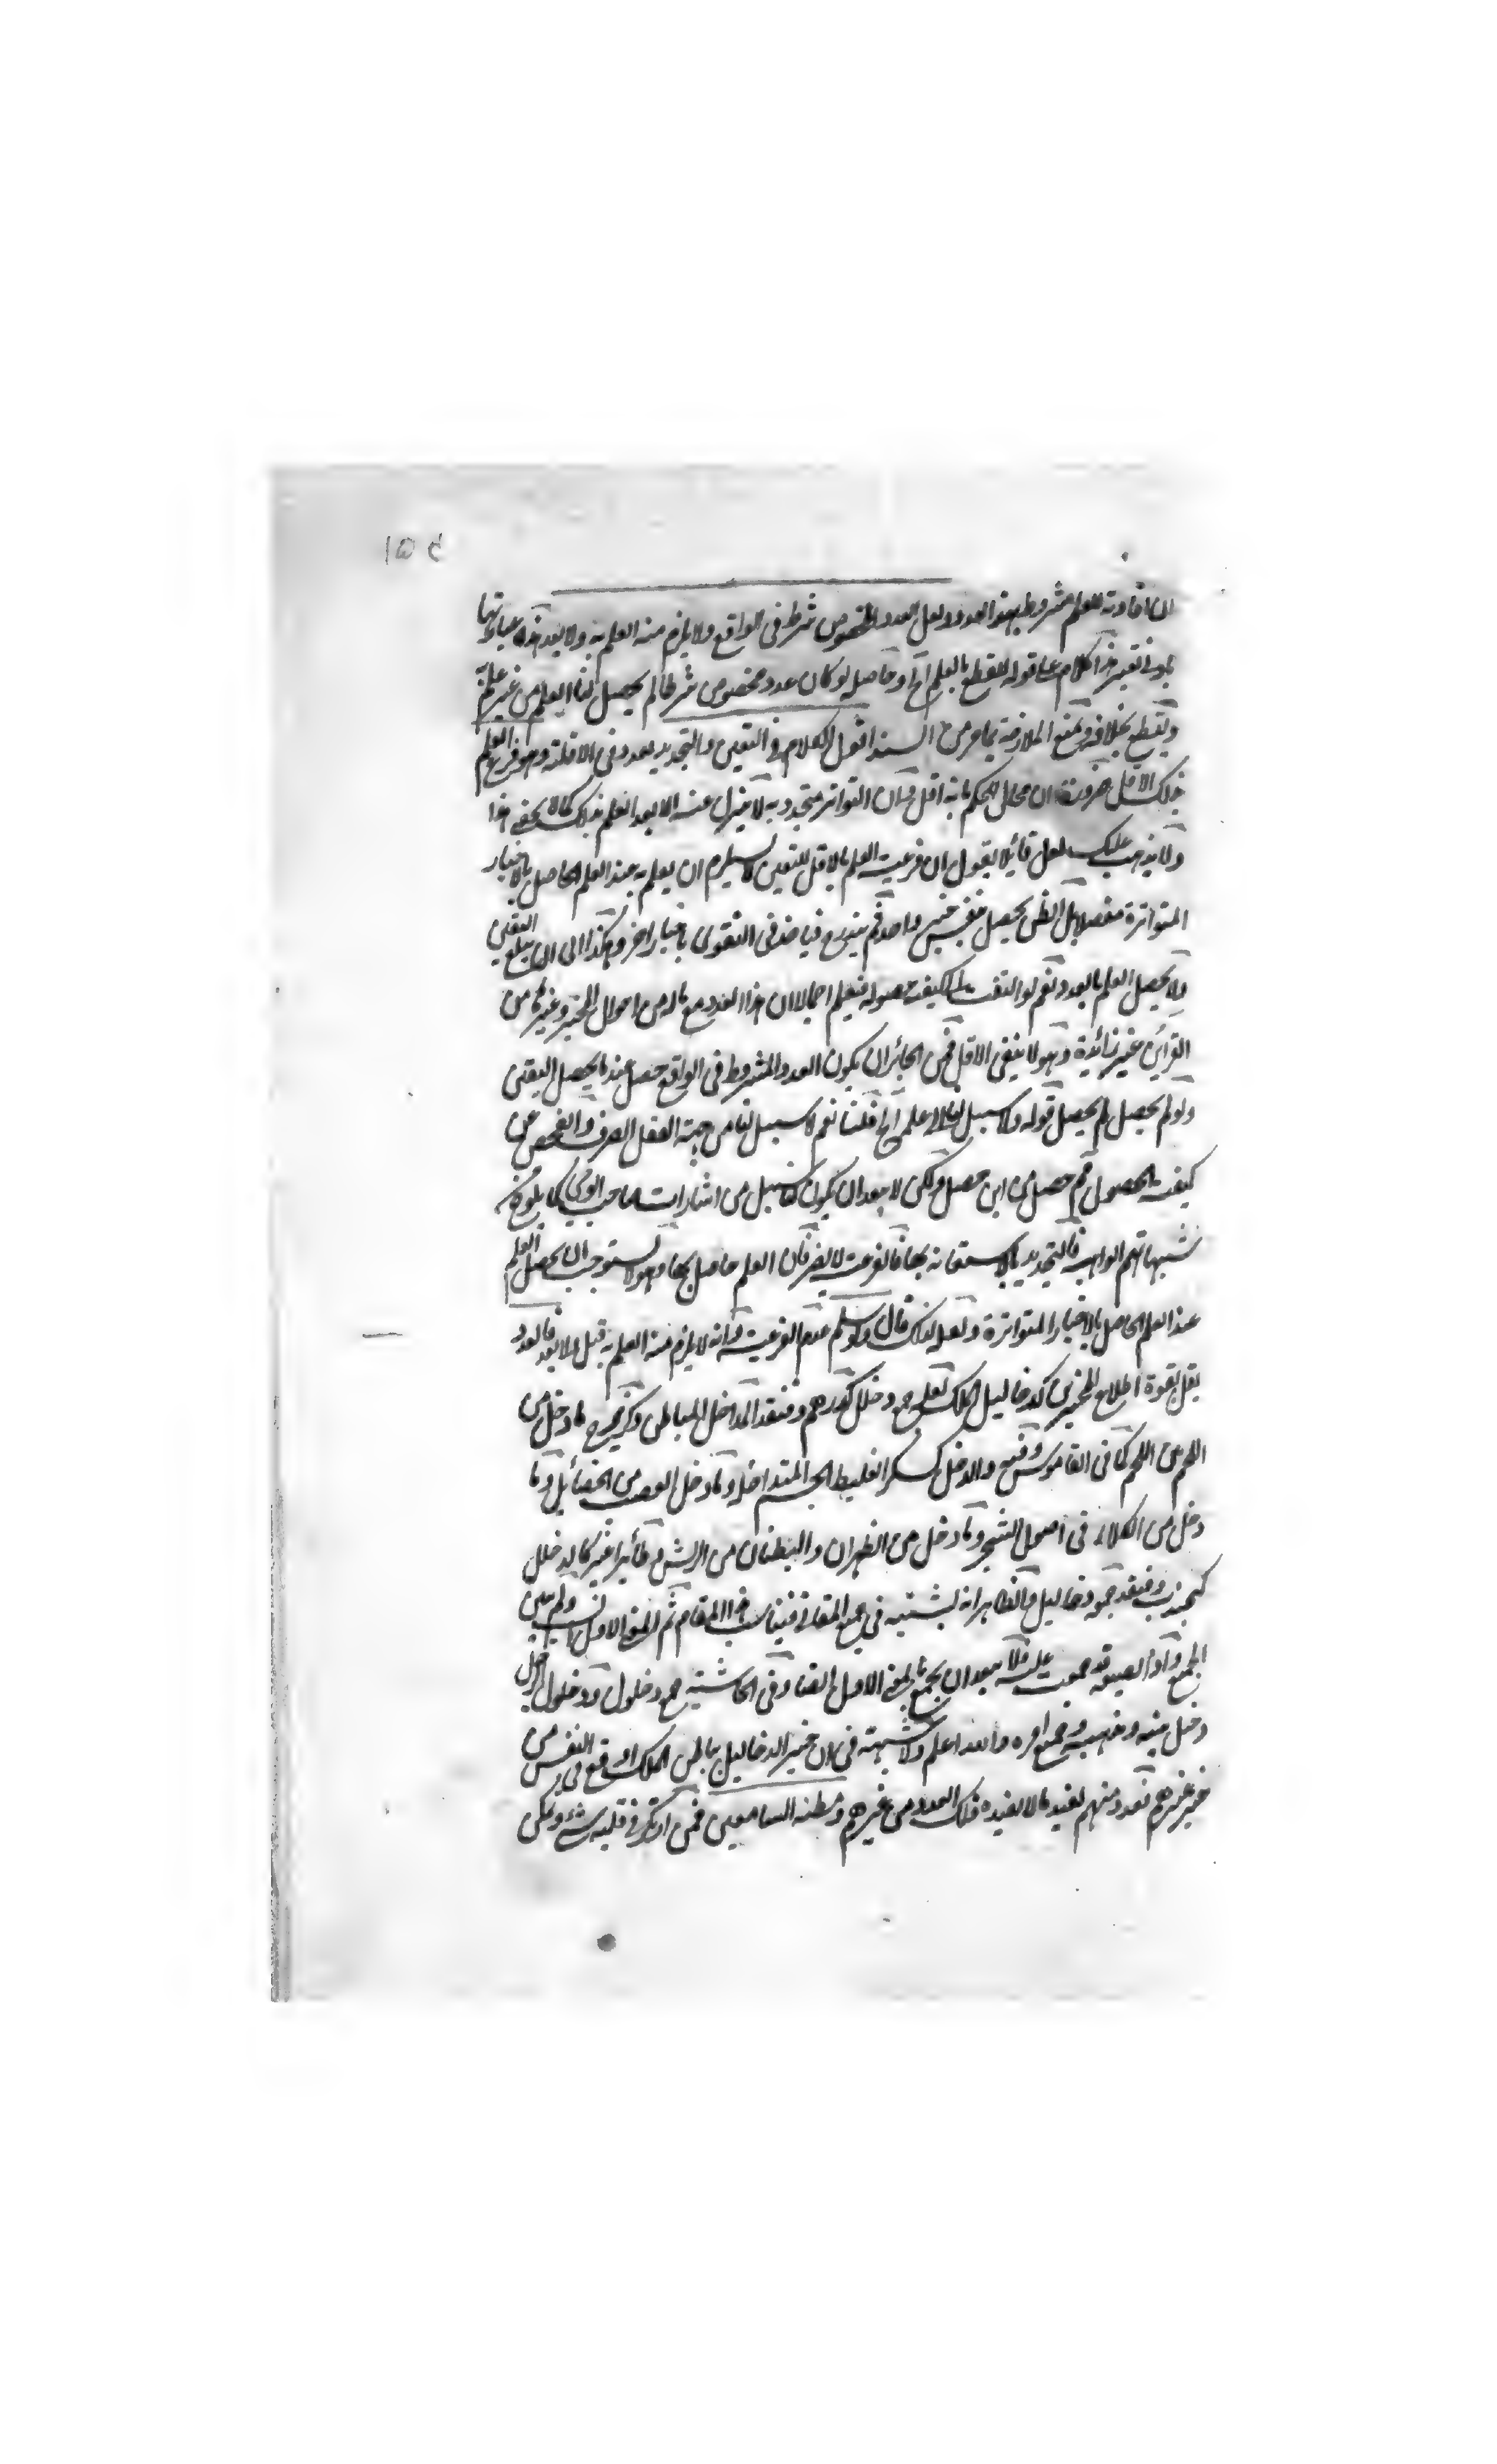 ان افادته للعلم مشروط بهذا العدد ولعل العدد المخصوص شرط فى الواقع ولا يلزم منه العلم به ولا بعد هذه عباراتها
تغير هذا الكلام على قوله للقطع بالعلم الخ وحاصله لو كان عدد مخصوص شرطا لم يحصل لنا العلم من غير علم
ونقطع بخلافه ويمنع الملازمة بما مر من السند اقول الكلام فى التعين والتحديد بعدد فى الاقلة وهو فرع العلم
بذلك الاقل ضرورة ان محال الحكم بانه اقل وان التواتر متحدد به لا ينزل عنه الا بعد العلم بذلك كما لا يخفى هذا
ولا يذهب عليك لعل قائلا يقول ان فرعية العلم بالاقل للتعين لا يستلزم ان يعلم به عند العلم الحاصل بالاخبار
المتواترة مفصلا بل الظن يحصل بخبر واحد ثم يتدرج فياخذ فى التقوى باخبار اخر وهكذا الى ان يبلغ اليقين
ولا يحصل العلم بالعدد نعم لو التفت الى كيفية حصوله فيعلم اجمالا ان هذا العدد مع ماله من احوال المخبر وغيرها من
القرائن غير زائدة وهو لا ينفى الاقل فمن الجائز ان يكون العدد المشروط فى الواقع حصل عند ما يحصل اليقين
ولو لم يحصل لم يحصل قوله ولا سبيل لنا الى علمه الخ قلنا نعم لا سبيل لنا من جهة العقل الصرف والفحص عن
كيفية الحصول مم حصل من اين حصل ولكن لا يبعد ان يكون لنا سبيل من اشارات صاحب الوحى كما يلوح من
شبهاتهم الواهية فالتحديد بالاستعانة بها فالفرعية لا يضر فان العلم حاصل بها وهو لا يستوجب ان يحصل العلم
عند العلم الحاصل بالاخبار المتواترة ولعله لذلك قال ولو سلم عدم الفرعية وانه لا يلزم منه العلم به قبل ولا بعد فالعدد
يقل بقوة اطلاع المخبرين كدخاليل الملك لعله جمع دخلل كدرهم وقنفذ المداخل المباطن وكزبرج ما دخل من
اللحم بين اللحم كما فى القاموس وفيه والدخل كسكر الغليظ الجسم المتداخله وما دخل العصب من الخصائل وما
دخل من الكلاء فى اصول الشجر وما دخل من الظهران والبطنان من الريش وطائر اغبر كالدخلل
كجندب وقنفذ جمعه دخاليل والظاهر انه يشتبه فى جميع المعانى فيناسب هذا المقام ثم المعنى الاول انسب ولم يبين
الجمع واذ الصيغة قد جمعت عليه فلا يبعد ان يجمع بالمعنى الاول ايضا وفى الحاشية جمع دخلول ودخلول الرجل
دخل نيته ومذهبه وجميع امره والله اعلم ولا شبهة فى ان خبر الدخاليل بباطن الملك اوقع فى النفس من
خبر غيرهم فعدد منهم يفيد ما لا يفيده ذلك العدد من غيرهم ومظنة السامعين فمن ارتكز فى قلبه شىء ولكن